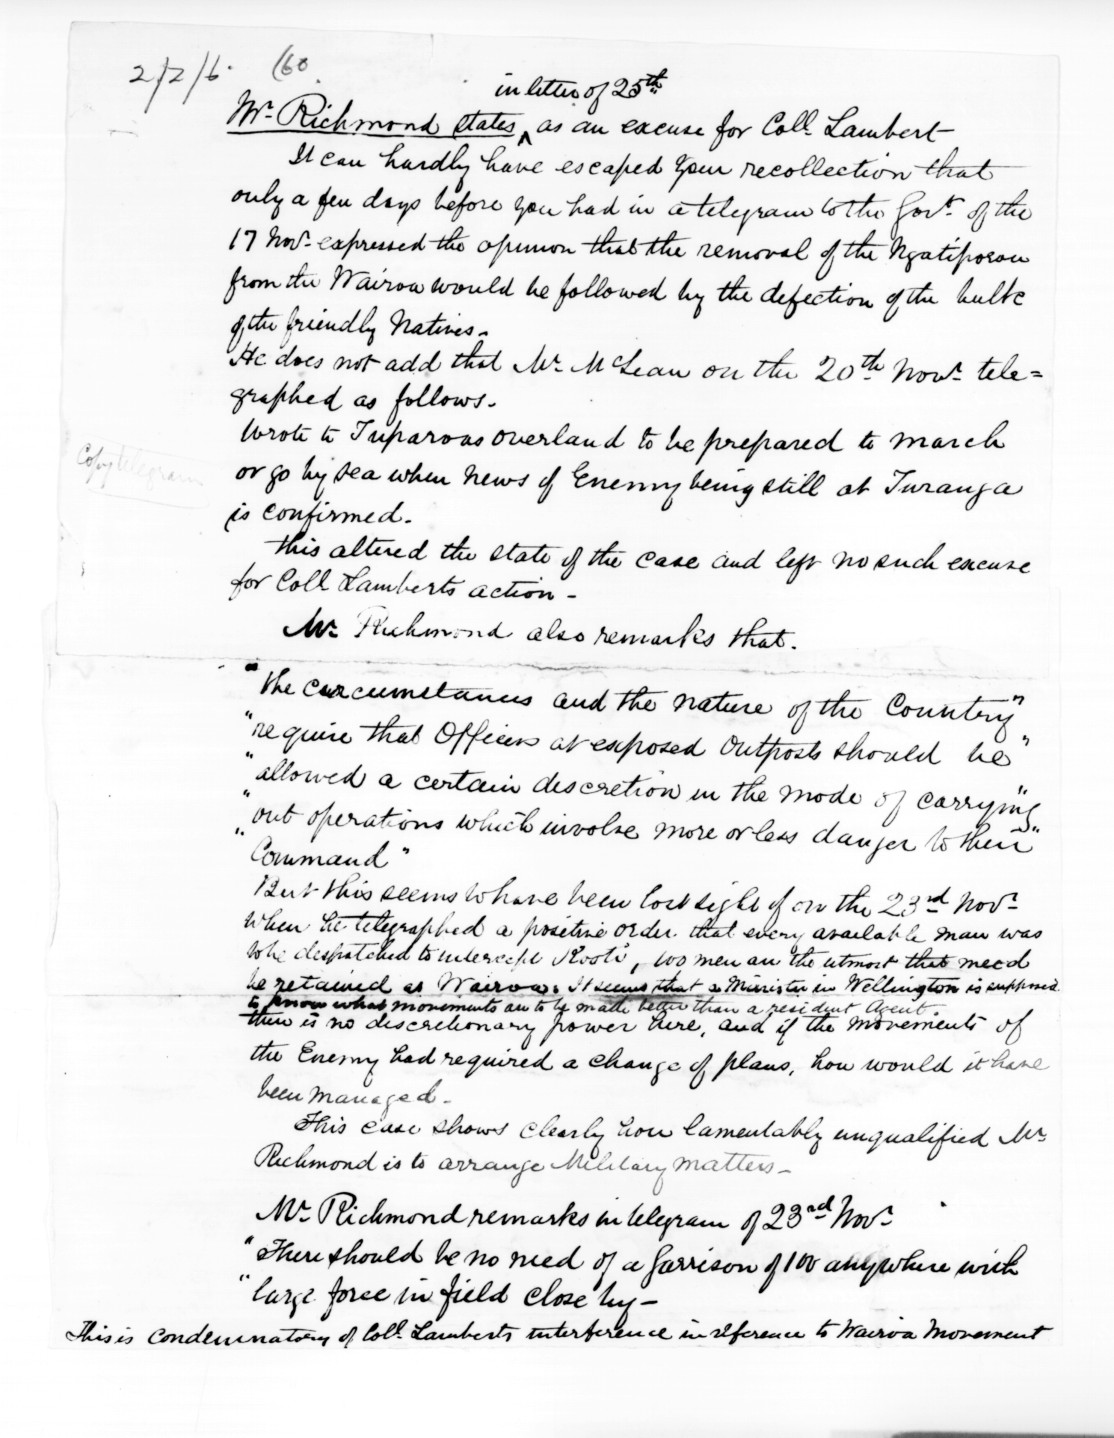 2/2/6. (60
in letter of 25th
Mr. Richmond states, as an excuse for Coll. Lambert
It can hardly have escaped your recollection that
only a few days before you had in a telegram to the Govt. of the
17 Novr. expressed the opinion that the removal of the Ngatiporou
from the Wairoa would be followed by the defection of the bulk
of the friendly Natives.
He does not add that Mr. McLean on the 20th Novr. tele=
graphed as follows.
Wrote to Tuparoas overland to be prepared to march
Copy telegram
or go by sea when news of Enemy being still at Turanga
is confirmed.
This altered the state of the case and left no such excuse
for Coll Lamberts action -
Mr. Richmond also remarks that.
"the circumstances and the nature of the Country"
"require that Officers at exposed Outposts should be"
"allowed a certain discretion in the mode of carrying"
"out operations which involve more or less danger to their"
"Command"
But this seems to have been lost sight of on the 23rd Novr.
when he telegraphed a positive order that every available man was
to be despatched to intercept Kooti, 100 men an the utmost that need
be retained at Wairoa. It seems that a Minister in Wellington is supposed
to know what movements are to be made better than a resident Agent.
there is no discretionary power here, and if the movements of
the Enemy had required a change of plans, how would it have
been managed.
This case shows clearly how lamentably unqualified Mr.
Richmond is to arrange Military matters -
Mr. Richmond remarks in telegram of 23rd Novr.
"There should be no need of a Garrison of 100 anywhere with
"large force in field close by -
This is condemnatory of Coll. Lamberts interference in reference to Wairoa Movement